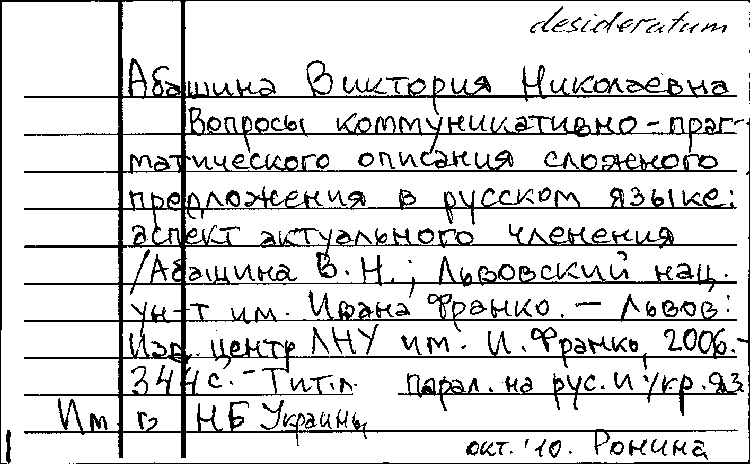 desideratum
Абашина Виктория Николаевна
Вопросы коммуникативно-праг-
матического описания сложного
предложения в русском языке:
аспект актуального членения
/Абашина В.Н.; Львовский нац.
ун-т им. Ивана Франко. – Львов:
Изд. центр ЛНУ им. И. Франко, 2006.-
344 с. – Тит.л. парал. на рус. и укр. яз.
Им. в НБ Украины
окт. '10. Ронина